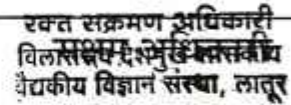 रक्त संक्रमण अधिकारी
विलासराव देशमुख शासकीय
वैद्यकीय विज्ञान संस्था, लातूर